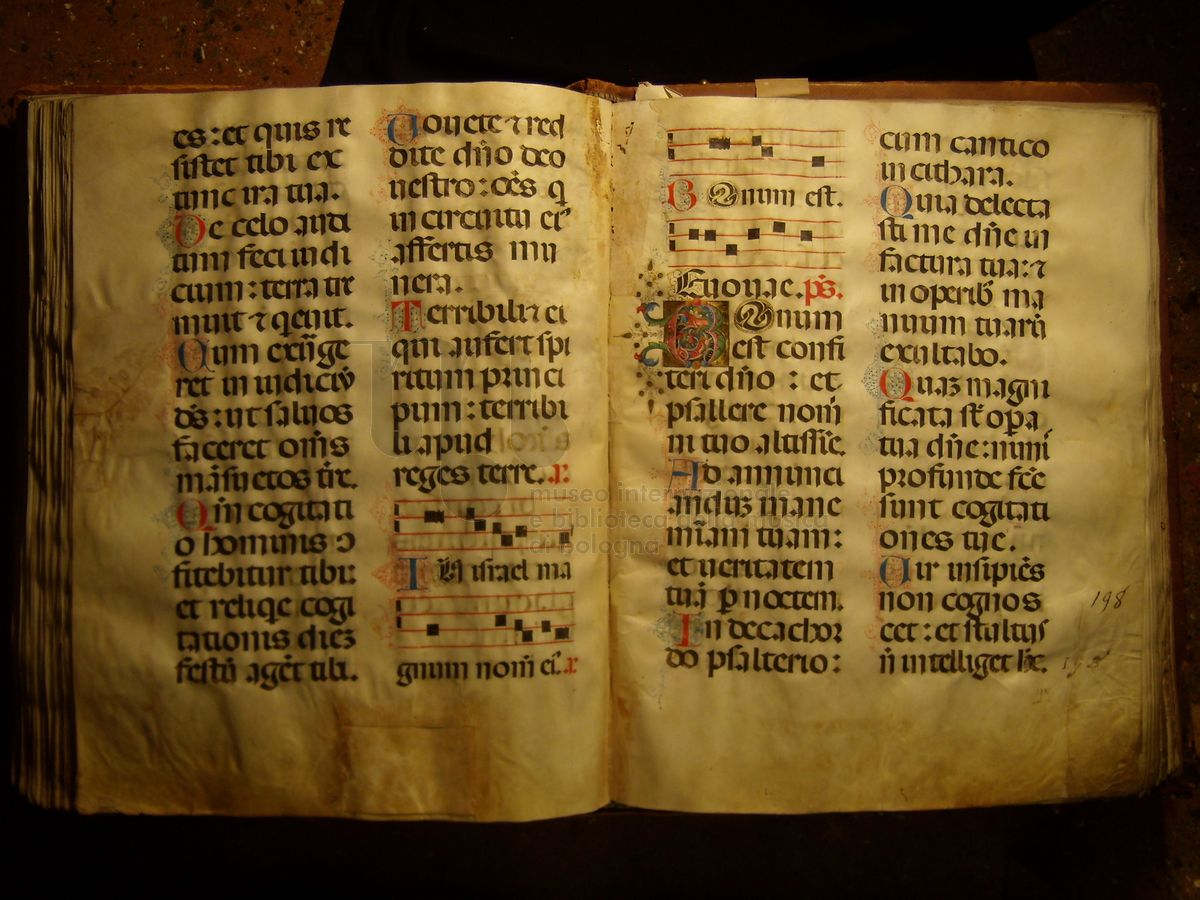 es : et quis re
sistet tibi ex
tunc ira tua.
De celo audi
tum feci iudi
cium : terra tre
muit ⁊ qeuit.
Cum exurge
ret in iudiciū
ds̄ : ut saluos
faceret om̄s
mā̄suetos tr̄e.
Qm̄ cogitati
o hominis ↄ
fitebitur tibi:
et reliqe cogi
tationis diez
festū agēt tibi.
Uouete ⁊ red
dite dn̄o deo
uestro : oēs q
in circuitu ei᾽
affertis mu
nera.
Terribili ⁊ ei
qui aufert spi
ritum princi
pum : terribi
li apud
reges terre. a.
In israel ma
gnum nom̄ ei᾽. a
Bonum est.
Euouae. ps̄.
Bonum
est confi
teri dn̄o : et
psallere nomi
ni tuo altissīe.
Ad annunci
anduz mane
mīam tuam :
et ueritatem
tuā p noctem.
In decachor
do psalterio :
cum cantico
in cithara.
Quia delecta
sti me dn̄e in
factura tua : ⁊
in operib᾽ ma
nuum tuarū
exultabo.
Quaz magni
ficata st̄ opa
tua dn̄e : nimi
profunde fc̄e
sunt cogitati
ones tue.
Uir insipiēs
non cognos
cet : et stultus
n̄ intelliget hec.
198
museo internazionale
e biblioteca della musica
di bologna